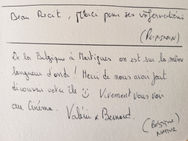 Beau Récit, Merci pour ses informations
De la Belgique à Martigues on est sur la même
longueur d'onde ! Merci de nous avoir fait
découvrir votre île ☺ Vivement vous voir
au Cinéma. Valérie & Bernard
(Belgique